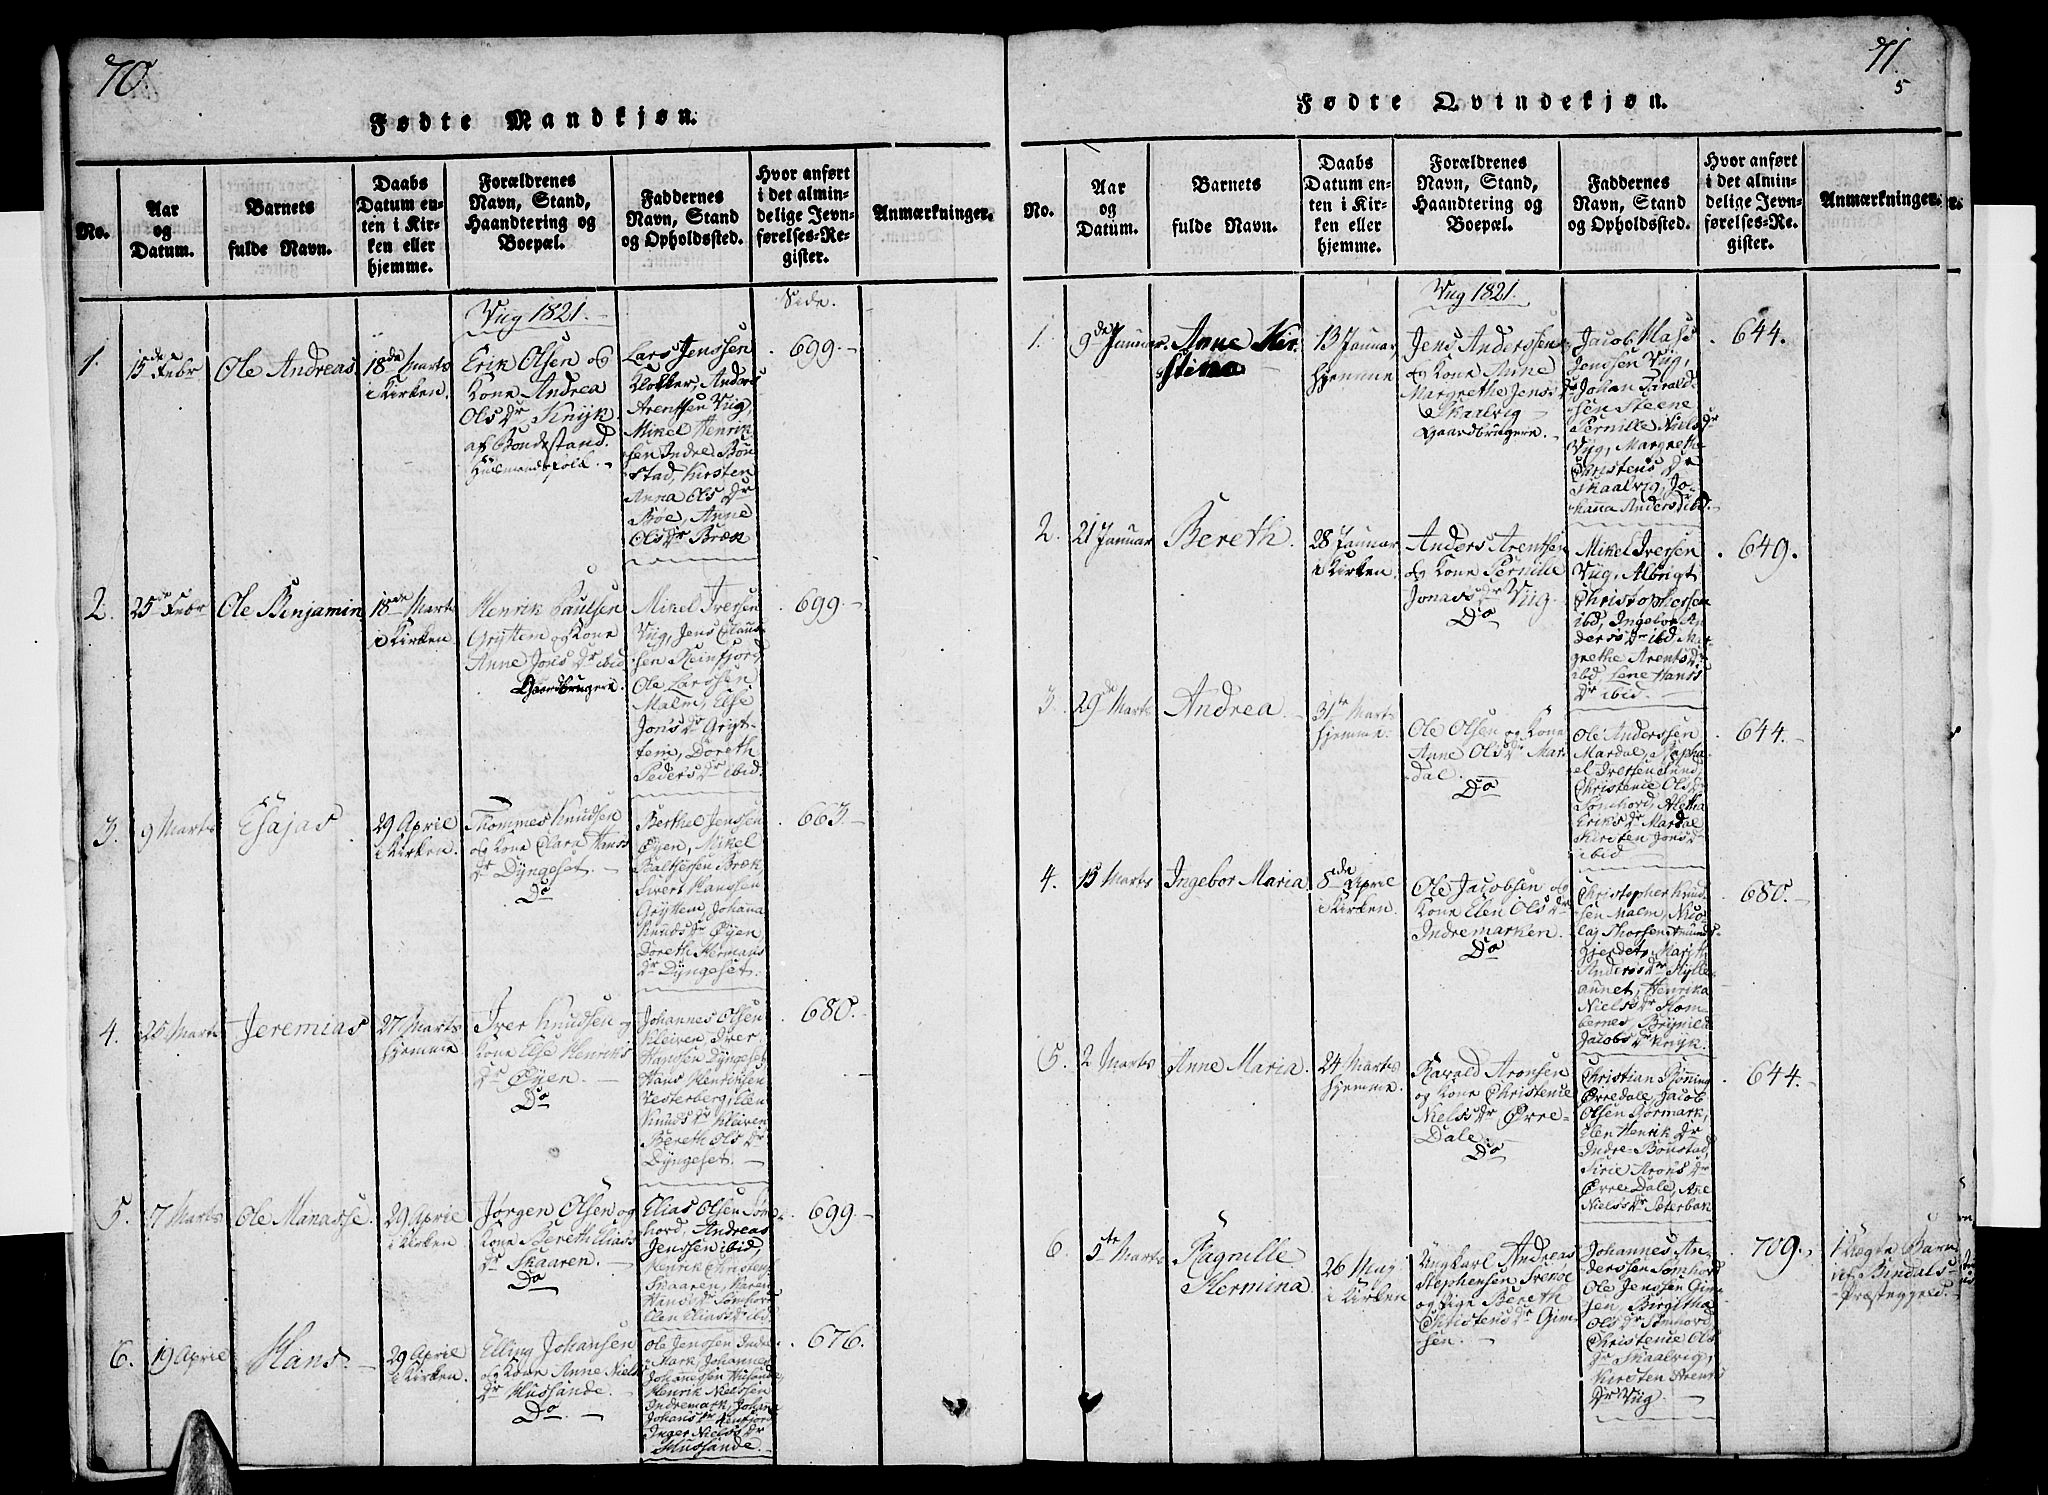 70.
Fødte Mandkjøn.
No.
Aar
og
Datum.
Barnets
fulde Navn.
Daabs
Datum en-
ten i Kir-
ken eller
hjemme.
Forældrenes
Navn, Stand,
Haandtering og
Boepæl.
Faddernes
Navn, Stand
og Opholdssted.
Hvor anført
i det almin-
delige Jevn-
førelses-Re-
gister.
Anmærkninger.
Vüg 1821.
Side.
1.
15de Febr
Ole Andreas
18de Marts
i Kirken.
Erik Olsen og
Kone Andrea
Ols Dr Knyk
af Bondestand.
Lars Jenssen
Klokker, Anders
Arentsen Vüg,
Mikel Henrik
sen Indre Bøu
stad, Kirsten
Anna Ols Dr
Bøe, Anne
Ols Dr Bræk
699.
2.
25de Febr
Ole Benjamin
18de Marts
i Kirken
Henrik Paulsen
Grÿttem og Kone
Anne Jons Dr ibid
Gaardbrugere.
Mikel Iversen
Vüg, Jens Claus-
sen Reinfjord
Ole Larssen
Malm, Else
Jons Dr Grÿt-
tem, Doreth
Peders Dr ibid.
699.
3.
9 Marts
Esajas
29 April
i Kirken.
Thommes Knudsen
og Kone Clara Hans
Dr Dÿngeset.
Do
Berthel Jenssen
Øyen, Mikel
Balthersen Bræk
Sivert Hanssen
Grÿttem, Johanna
Knuds Dr Øyen
Doreth Hermans
Dr Dÿngeset.
663
4.
25 Marts
Jeremias
27 Marts
hjemme
Iver Knudsen og
Kone Else Henriks
Dr Øyen.
Do
Johannes Olsen
Kleiven, Iver
Hanssen Dÿngeset
Hans Henriksen
Vesterberg, Elen
Knuds Dr Kleiven
Bereth Ols Dr
Dÿngeset.
680.
5.
7 Marts
Ole Manasse.
29 April
i Kirken
Jørgen Olsen og
Kone Bereth Elias
Dr Skaaren.
Do
Elias Olsen Søm-
hord, Andreas
Jenssen ibid,
Henrik Christens
Skaaren, Karen
Hans Dr Sømhord
Elen Elias Dr ibid
699
6.
19 April
Hans.
29 April
i Kirken.
Elling Johansen
og Kone Anne Niels
Dr Hussande.
Do.
Ole Jenssen Indre
Mark, Johannes
Johanssen Husande,
Henrik Nielssen
Indremark, Johana
Johans Dr Renfjord
Inger Niels Dr
Hussande.
676.
71.
5
Fødte Qvindekjøn.
No.
Aar
og
Datum.
Barnets
fulde Navn.
Daabs
Datum en-
ten i Kir-
ken eller
hjemme.
Forældrenes
Navn, Stand,
Haandtering og
Boepæl.
Faddernes
Navn, Stand
og Opholdssted.
Hvor anført
i det almin-
delige Jevn-
førelses-Re-
gister.
Anmærkninger.
Vüg 1821.
1.
9de Januar.
Anne Kir-
stina
13 Januar,
hjemme
Jens Anderssen
og Kone Mine
Margrethe Jens Dr
Skaalvig
Gaardbrugere.
Jacob Mass
Jenssen Vüg,
Johan
sen Steene
Pernille Niels Dr
Vüg, Margrethe
Christens Dr
Skaalvig, Jo-
hanna Anders Dr ibid.
644.
2.
21 Januar
Bereth.
28 Januar
i Kirken.
Anders Arentsen
og Kone Pernille
Jonas Dr Vüg
Do
Mikel Iversen
Vüg, Albrigt
Christophersen
ibd, Ingebor An-
ders Dr ibd Mar-
grethe Arents Dr
ibd, Lene Hans
Dr ibid.
649.
3.
29de Marts
Andrea
31te Marts
hjemme.
Ole Olsen og Kone
Anne Ols Dr Mar-
dal.
Do
Ole Anderssen
Mardal, Rapha-
el Iversen Sund,
Christence Ols Dr
Sømhord, Aletha
Eriks Dr Mardal
Kirsten Jons Dr
ibid
644.
4.
15 Marts
Ingebor Maria
8de April
i Kirken.
Ole Jacobsen og
Kone Elen Ols Dr
Indremarken.
Do
Christopher Knud-
sen Malm, Nico-
laj Thorsen Amunds-
gjerdet, Marith
Anders Dr Hÿlle-
annet, Henrika
Niels Dr Hom-
bernes, Brÿnild
Jacobs Dr Knÿk.
680.
5.
2 Marts
Anne Maria.
24 Marts
hjemme.
Harald Aronsen
og Kone Christence
Niels Dr Ørre-
Dale
Do
Christian Bøning
Ørredale, Jacob
Olsen Hormark,
Elen Henrik Dr
Indre-Bøustad,
Sirie Arons Dr
Ørre Dale, Ane
Niels Dr Sæterban
644
6.
5te Marts
Ragnille
Hermina
26 Maÿ
i Kirken
Üngkarl Andreas
Stephensen Trenøe
og Pige Bereth
Christens Dr Gim-
sen.
Johannes An-
derssen Sømhord
Ole Jenssen Gim-
sen, Birgitha
Ols Dr Sømhord
Christence Ols
Dr Skaalvig,
Kirsten Arents
Dr Vüg.
709.
Uægte Barn
af Bindals
Præstegield.